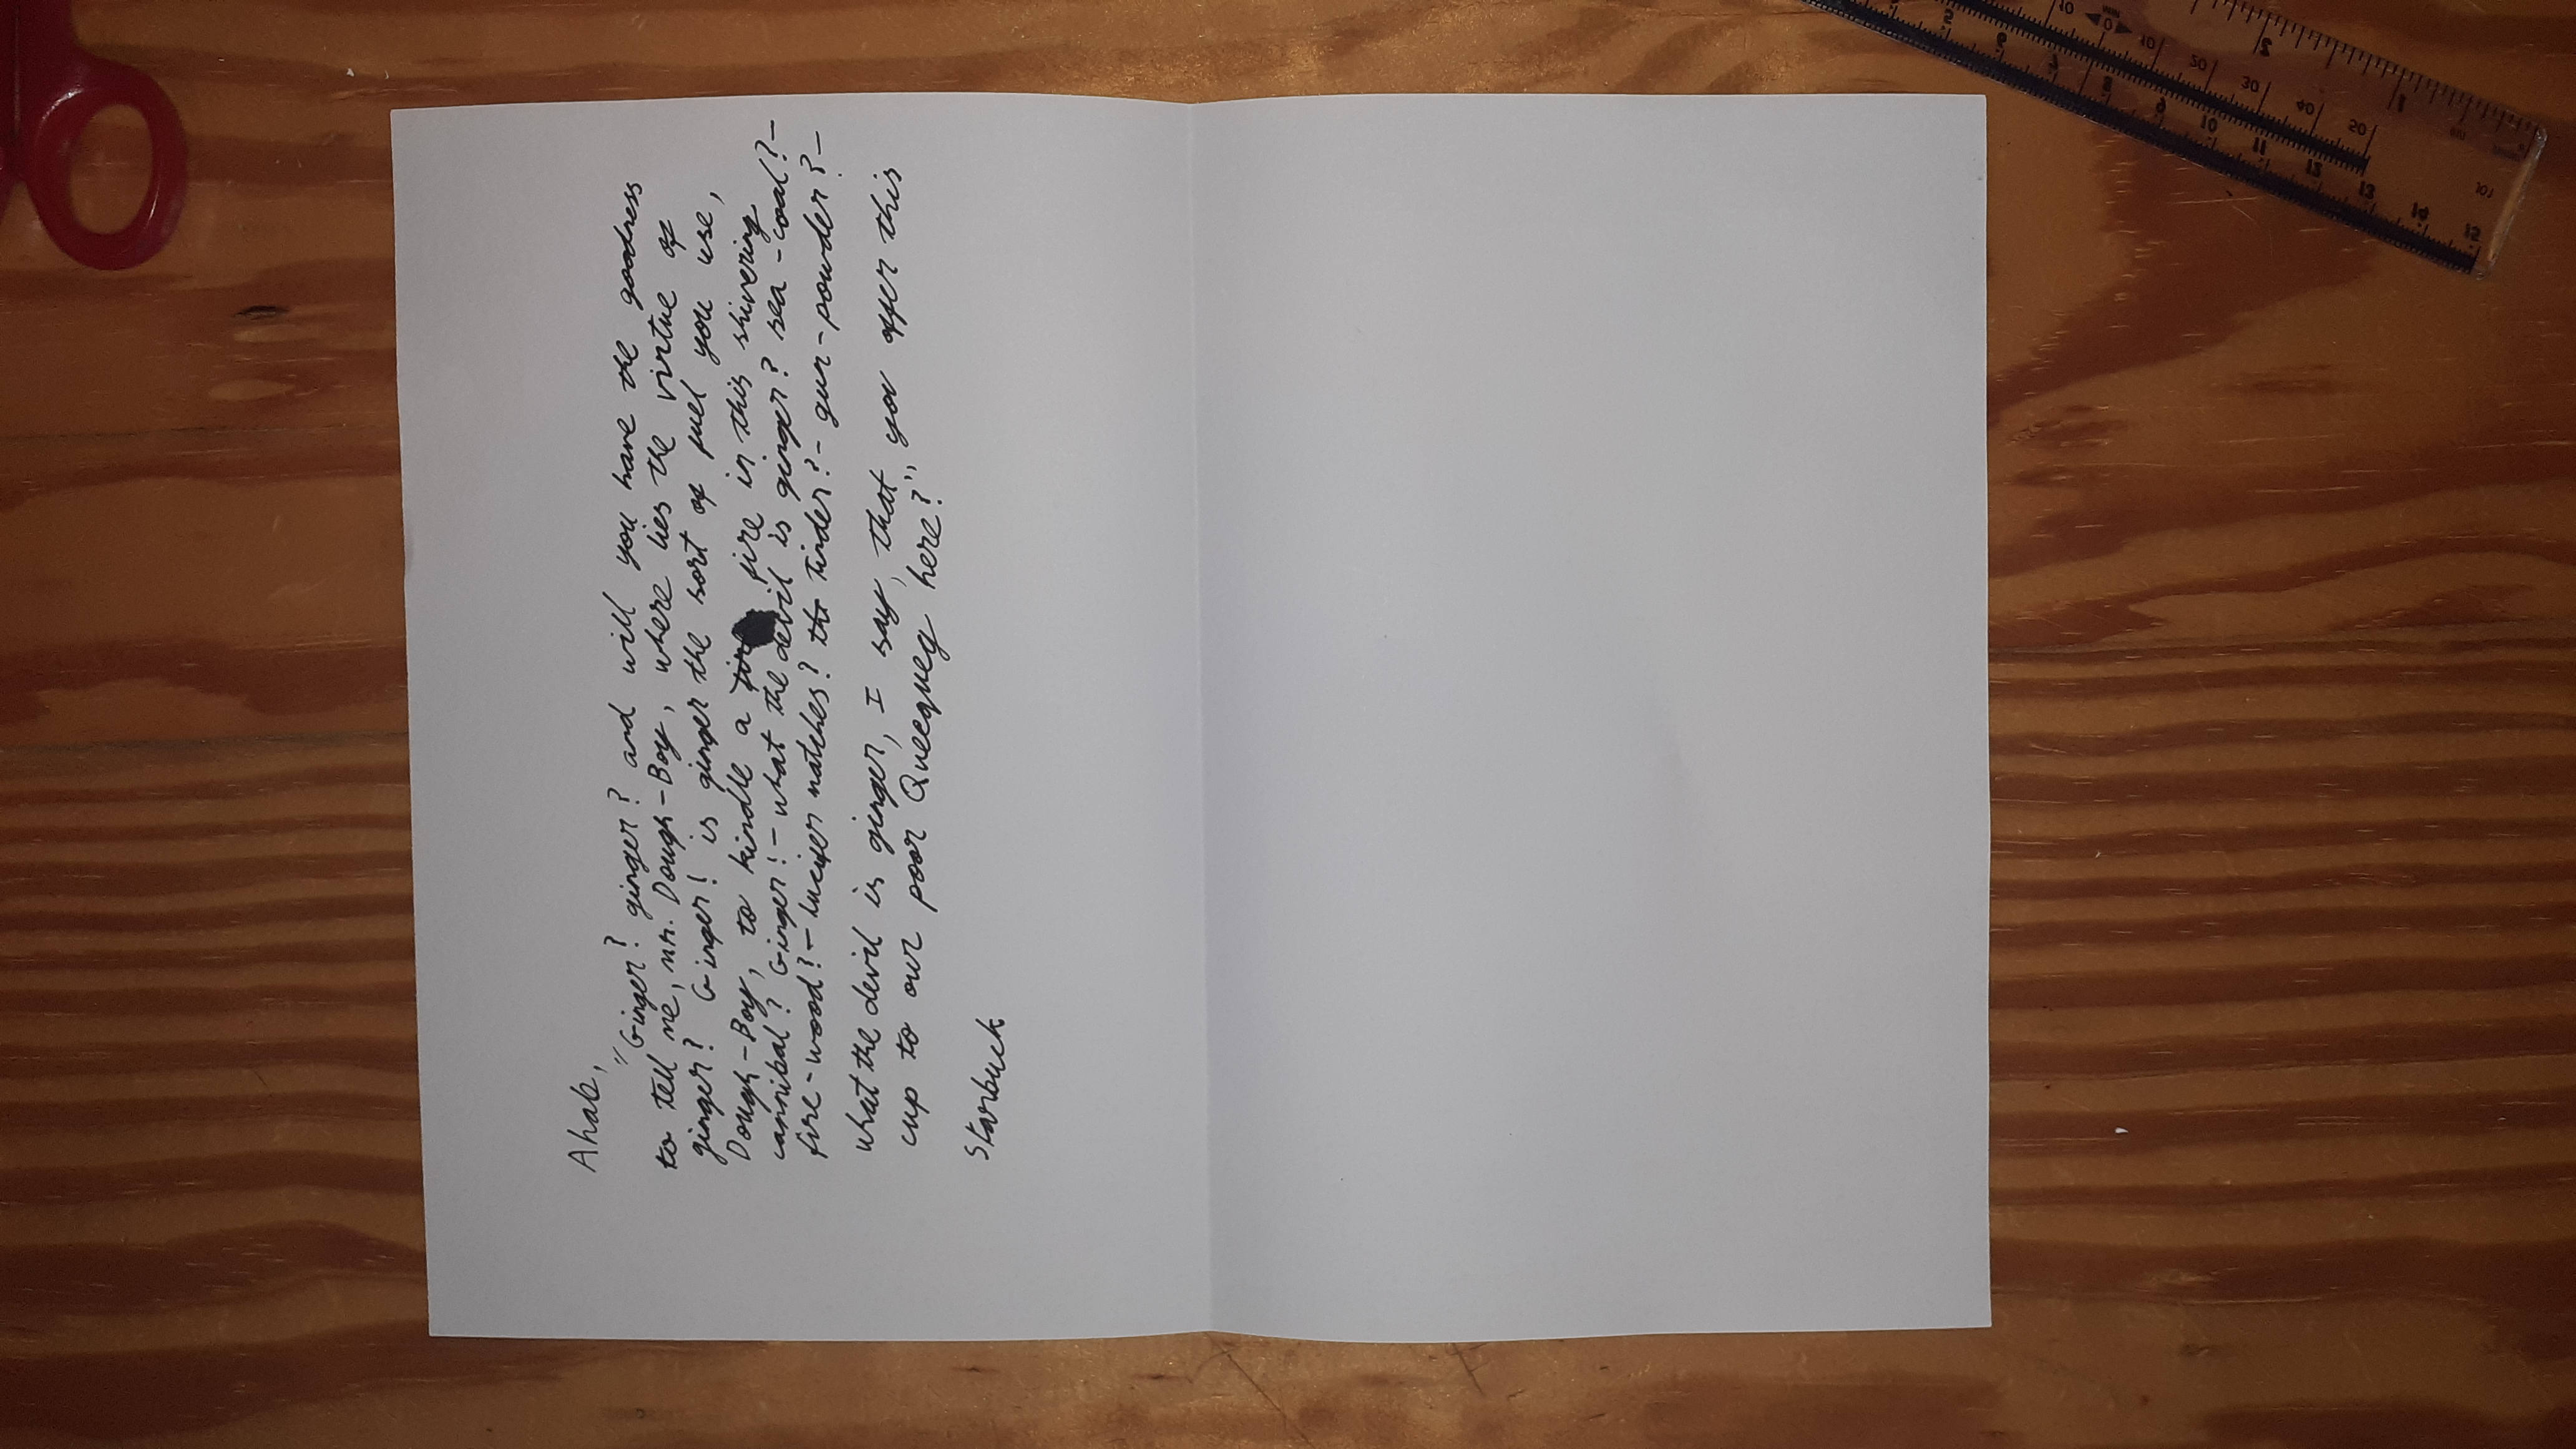 Ahab,
"Ginger? ginger? and will you have the goodness
to tell me, mr. Dough-Boy, where lies the virtue of
ginger? Ginger! is ginger the sort of fuel you use,
Dough-Boy, to kindle a fire in this shivering
cannibal? Ginger!- what the devil is ginger? sea-coal?-
fire-wood?- lucifer matches? tinder?- gun-powder?-
what the devil is ginger, I say, that you offer this
cup to our poor Queequeg here?"
Starbuck
10 0 10 20 30 40 50
5 6 7 8 9 10 11 12 13 14 15
2 1